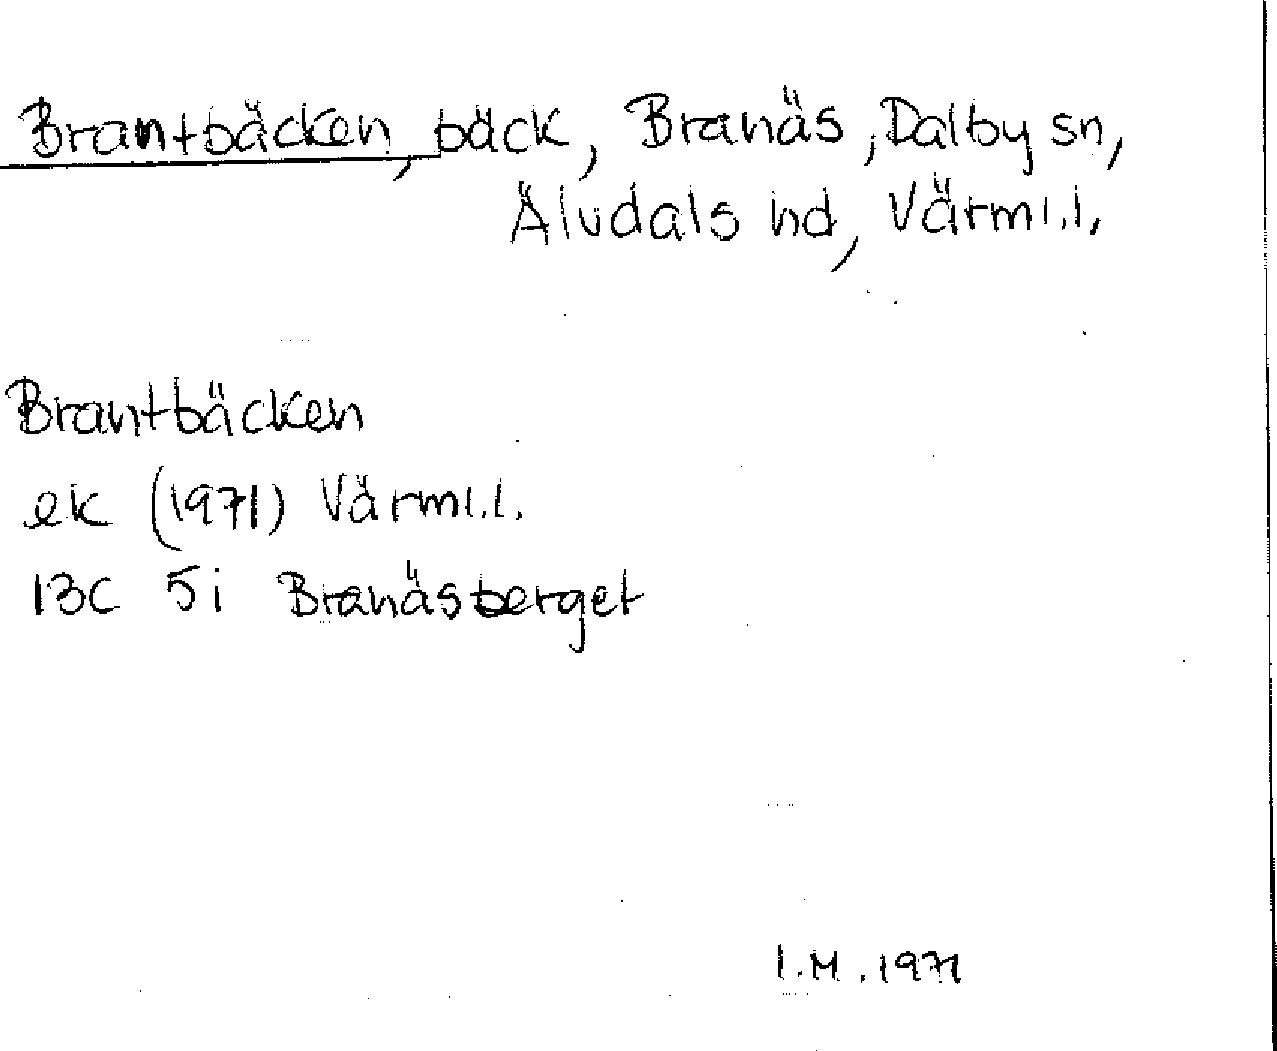 Brantbäcken, bäck, Branäs, Dalby sn,
Älvdals hd, Värml.l.
Brantbäcken
ek (1971) Värml.l.
13C 5i Branäsberget
I.M. 1971